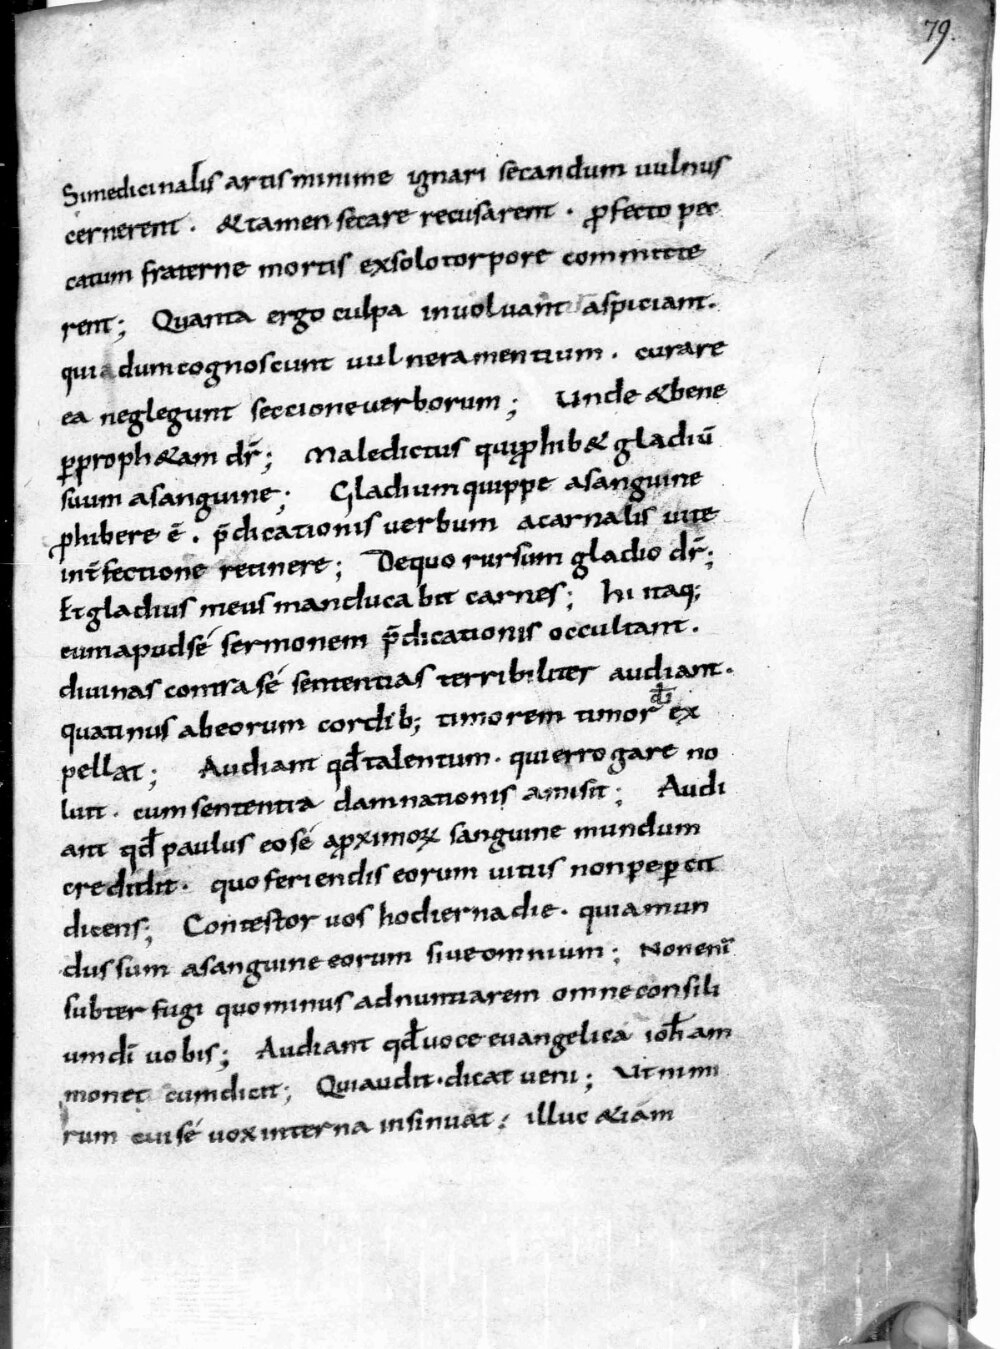 79.
Si medicinalis artis minime ignari secandum uulnus
cernerent · & tamen secare recusarent · ꝓfecto pec
catum fraterne mortis ex solo torpore committe
rent; Quanta ergo culpa inuoluant aspiciant.
quia dum cognoscunt uulnera mentium · curare
ea neglegunt seccione uerborum; Unde & bene
ꝑ proph&am dr̄; Maledictus qui ꝓhib& gladiū
suum a sanguine; Gladium quippe a sanguine
ꝓhibere ē · p̄dicationis uerbum a carnalis uite
int̄fectione retinere; De quo rursum gladio dr̄;
Et gladius meus manducabit carnes; hi itaq;
cum apud sé sermonem p̄dicationis occultant.
diuinas contra sé sententias terribiliter audiant.
quatinus ab eorum cordib; timorem timor d̄i ex
pellat; Audiant qđ talentum · qui errogare no
luit · cum sententia damnationis amisit; Audi
ant qđ paulus eo sé a ꝓximoꝝ sanguine mundum
credidit · quo feriendis eorum uitiis non peꝑcit
dicens; Contestor uos hodierna die · quia mun
dus sum a sanguine eorum siue omnium; Non enī
subterfugi quominus adnuntiarem omne consili
um dī uobis; Audiant qđ uoce euangelica ioh̄ am
monet cum dicit; Qui audit · dicat ueni; Ut nimi
rum cui sé uox interna insinuat; illuc &iam